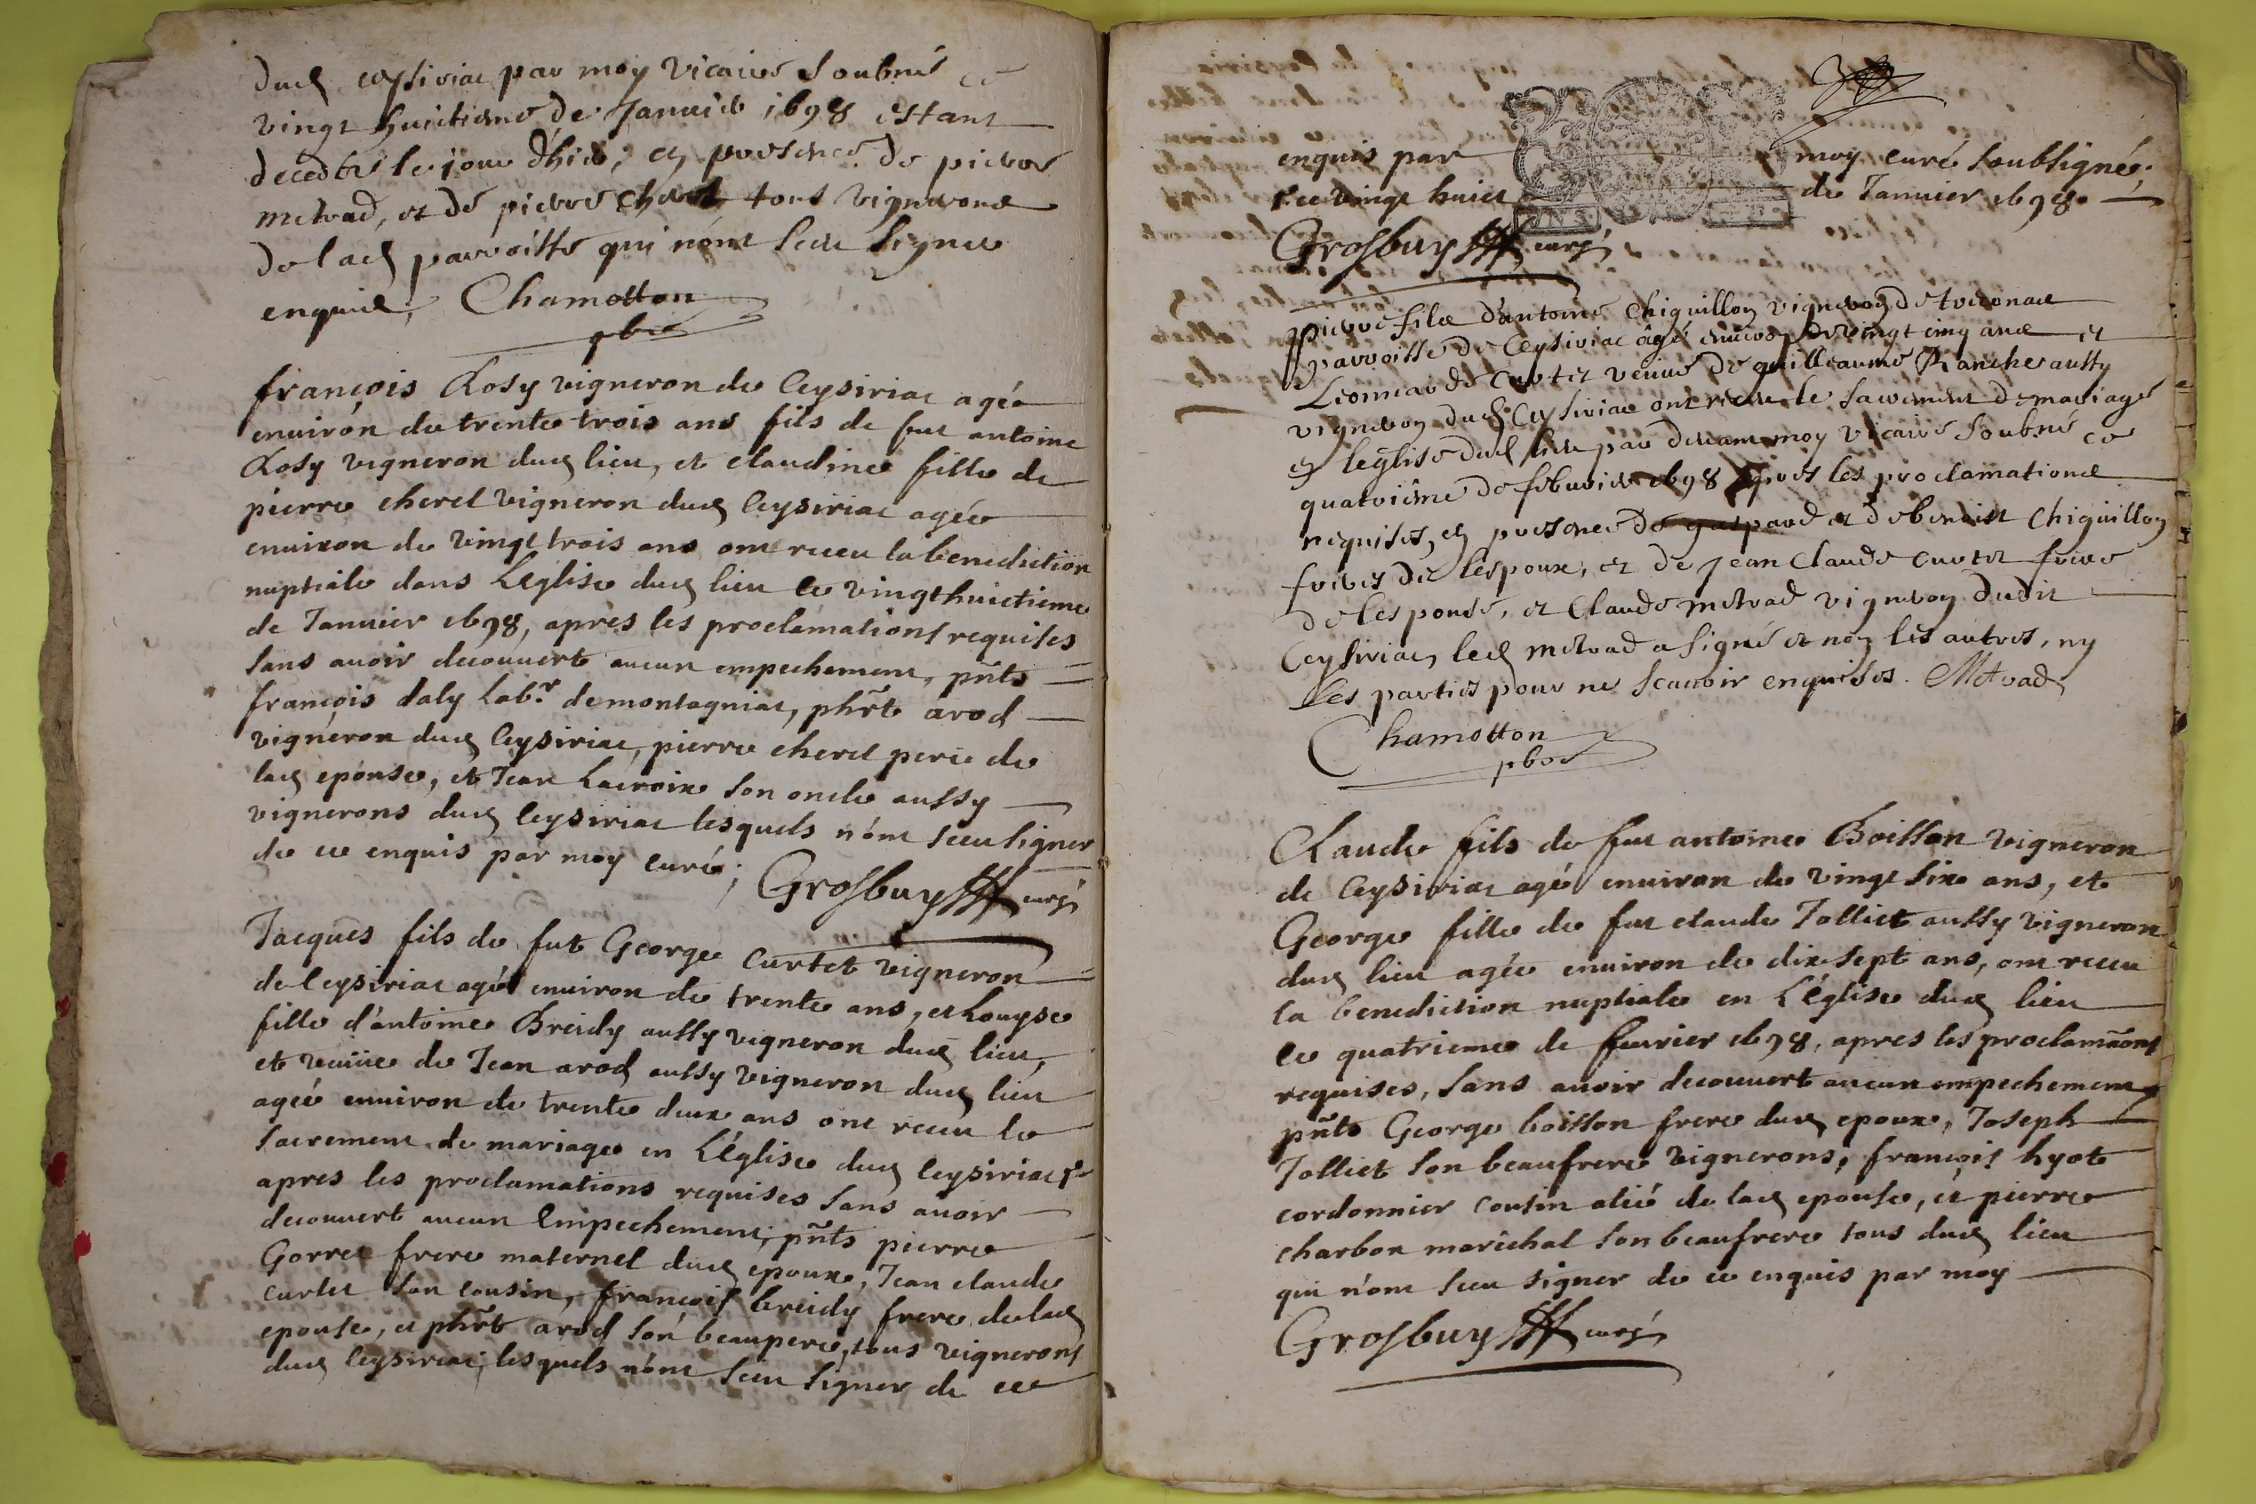 dud ceysiriac par moy vicaire soubné ce
vingt huictieme de Janvier 1698 estant
decedée le jour d'hier, en presence de pierre
metrad, et de pierre cherel tous vignerons
de lad parroisse qui n'ont sceu signer
enquis, Chamotton
pbre
françois Rosy vigneron de Ceysiriac agée
environ de trente trois ans fils de fut antoine
Rosy vigneron dud lieu, et claudine fille de
pierre cherel vigneron dud Ceysiriac agée
environ de vingt trois ans ont receu la benediction
nuptiale dans L'eglise dud lieu ce vingt huictieme
de Janvier 1698, apres les proclamations requises
sans avoir decouvert aucun empechement, pñts
françois daly Lab.r de montagniac, phr̃t arod
vigneron dud Ceysiriac, pierre cherel pere de
lad epouse, et Jean Lacroix son oncle aussy
vignerons dud Ceysiriac lesquels n'ont sceu signer
de ce enquis par moy curé; Grosbuy curé
Jacques fils de fut George Curtet vigneron
de Ceysiriac agé environ de trente ans, et Louyse
fille d'antoine Breidy aussy vigneron dud lieu,
et veuve de Jean arod aussy vigneron dud lieu
agée environ de trente deux ans ont receu le
sacrement de mariage en L'église dud Ceysiriac
apres les proclamations requises sans avoir
decouvert aucun Empechement, pñts pierre
Gorrel frere maternel dud epoux, Jean claude
curtet son cousin, françois breidy frere de lad
epouse, et phr̃t arod son beaupere, tous vignerons
dud Ceysiriac, lesquels n'ont sceu signer de ce
enquis par moy curé soubsigné,
ce vingt huict de Janvier 1698.
Grosbuy curé
pierre fils d'antoine Chiquillon vigneron de
parroisse de Ceysiriac âgé environ de vingt cinq ans et
Leonnarde Curtet veuve de guilleaume Ranche aussy
vigneron dud Ceysiriac ont receu le sacrement de mariage
en l'eglise dud lieu par devant moy vicaire soubné ce
quatriéme de febvrier 1698 apres les proclamations
requises, en presence de gaspard et de benoist Chiquillon
freres de l'espoux, et de Jean Claude Curtet frere
de l'espouse, et Claude metrad vigneron dudit
Ceysiriac, led metrad a signé et non les autres, ny
les parties pour ne scavoir enquises. Metrad
Chamotton
pbre
Claude fils de fut antoine Boisson vigneron
de Ceysiriac agé environ de vingt six ans, et
George fille de fut claude Jolliet aussy vigneron
dud lieu agée environ de dix sept ans, ont receu
la benediction nuptiale en L'église dud lieu
ce quatrieme de fevrier 1698, apres les proclamaõns
requises, sans avoir decouvert aucun empechement
pñts George boisson frere dud epoux, Joseph
Jolliet son beaufrere vignerons, françois hyot
cordonnier cousin alié de lad epouse, et pierre
charbon marichal son beaufrere tous dud lieu
qui n'ont sceu signer de ce enquis par moy
Grosbuy curé